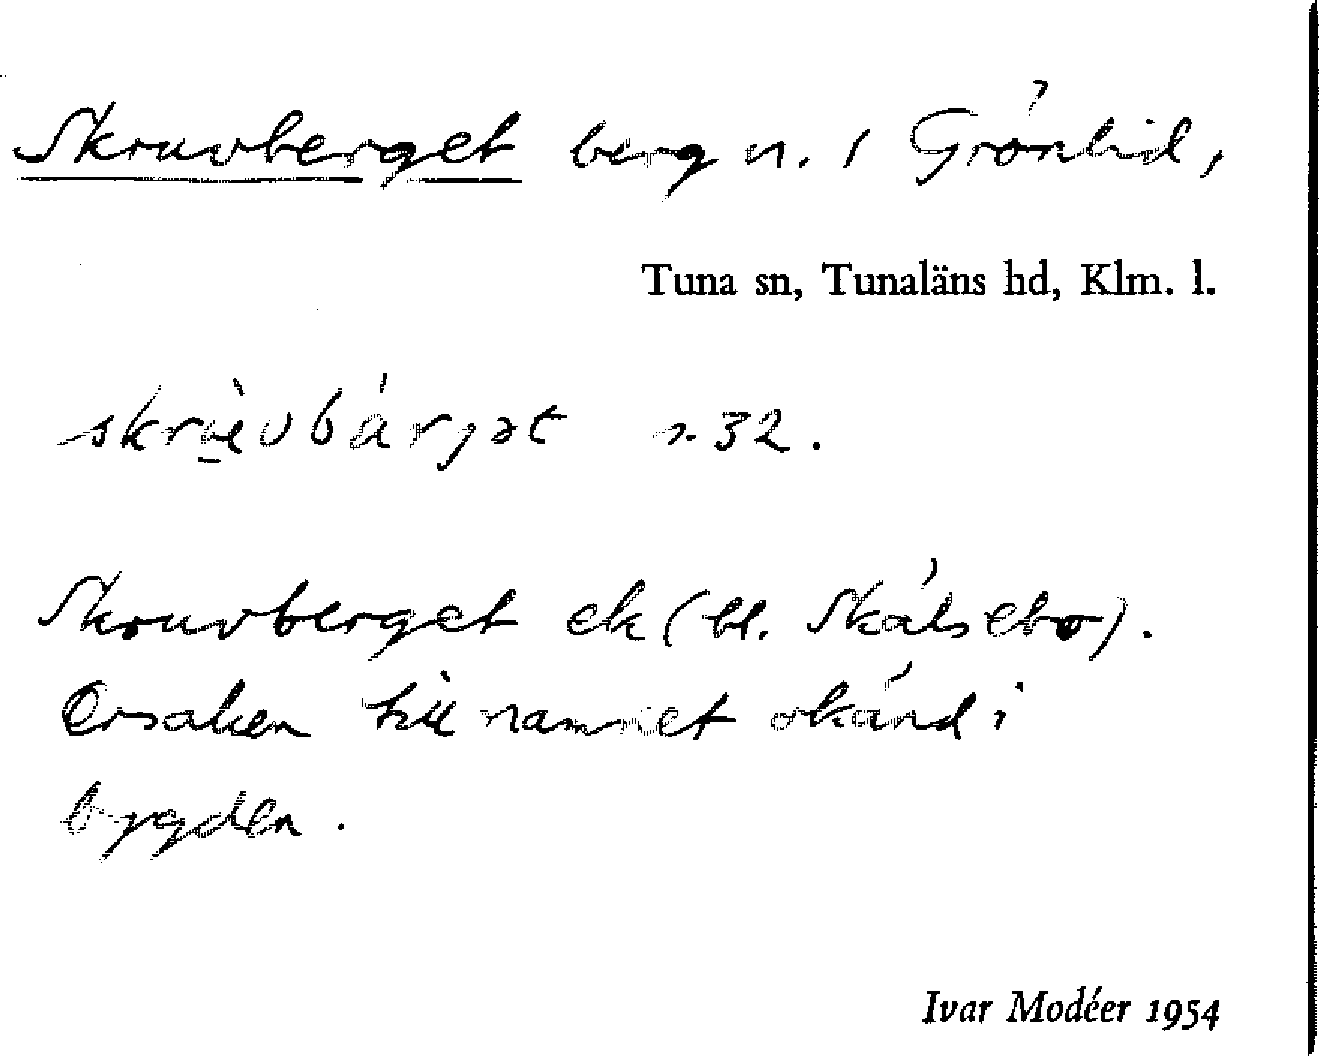 Skruvberget berg n. i Grönlid,
Tuna sn, Tunaläns hd, Klm. l.
s. 32.
Skruvberget ek (bl. Skälsebo).
Orsaken till namnet okänd i
bygden.
Ivar Modéer 1954